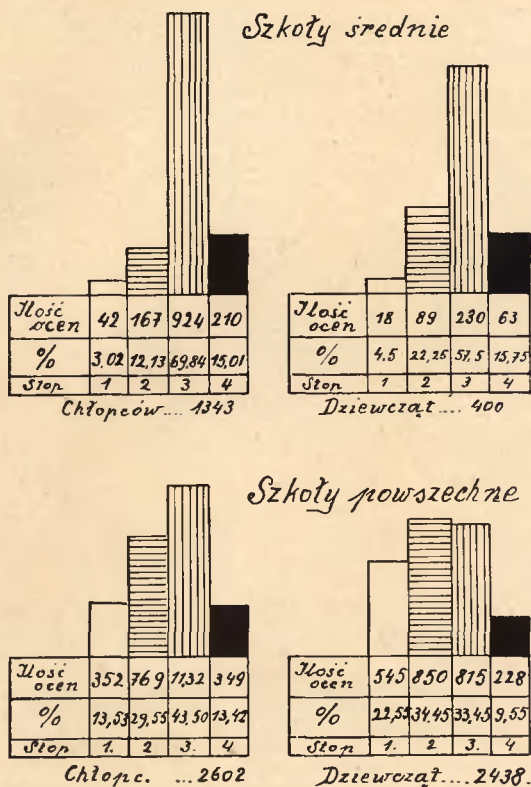 Szkoły średnie
Ilość ocen 42 167 924 210
% 3,02 12,13 69,84 15,01
Stop 1 2 3. 4
Chłopców.... 1343
Ilość ocen 18 89 230 63
% 4.5 22,25 57,5 15,75
Stop 1 2 3. 4
Dziewcząt.... 400
Szkoły powszechne
Ilość ocen 352 769 1132 349
% 13,53 29,55 43,50 13,42
Stop 1. 2 3. 4
Chłopc. ...2602
Ilość ocen 545 850 815 228
% 22,55 34.45 33,45 9,55
Stop 1. 2 3. 4
Dziewcząt....2438.